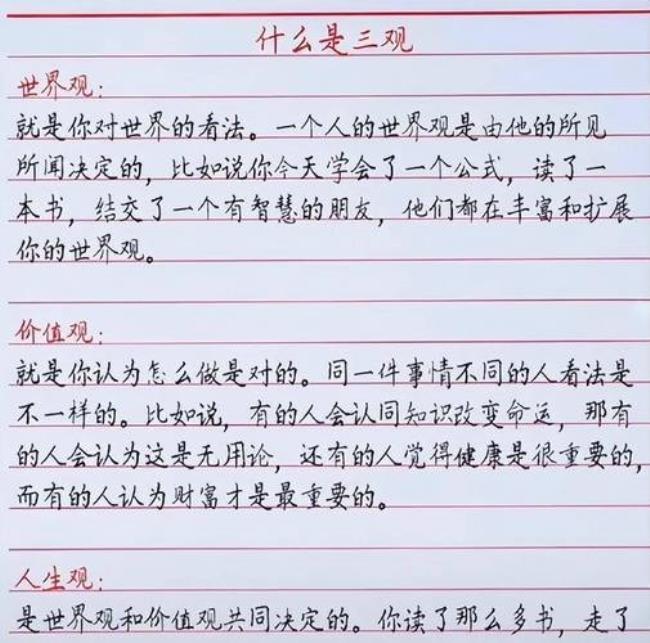 什么是三观
世界观：
就是你对世界的看法。一个人的世界观是由他的所见
所闻决定的，比如说你今天学会了一个公式，读了一
本书，结交了一个有智慧的朋友，他们都在丰富和扩展
你的世界观。
价值观：
就是你认为怎么做是对的。同一件事情不同的人看法是
不一样的。比如说，有的人会认同知识改变命运，那有
的人会认为这是无用论，还有的人觉得健康是很重要的，
而有的人认为财富才是最重要的。
人生观：
是世界观和价值观共同决定的。你读了那么多书，走了